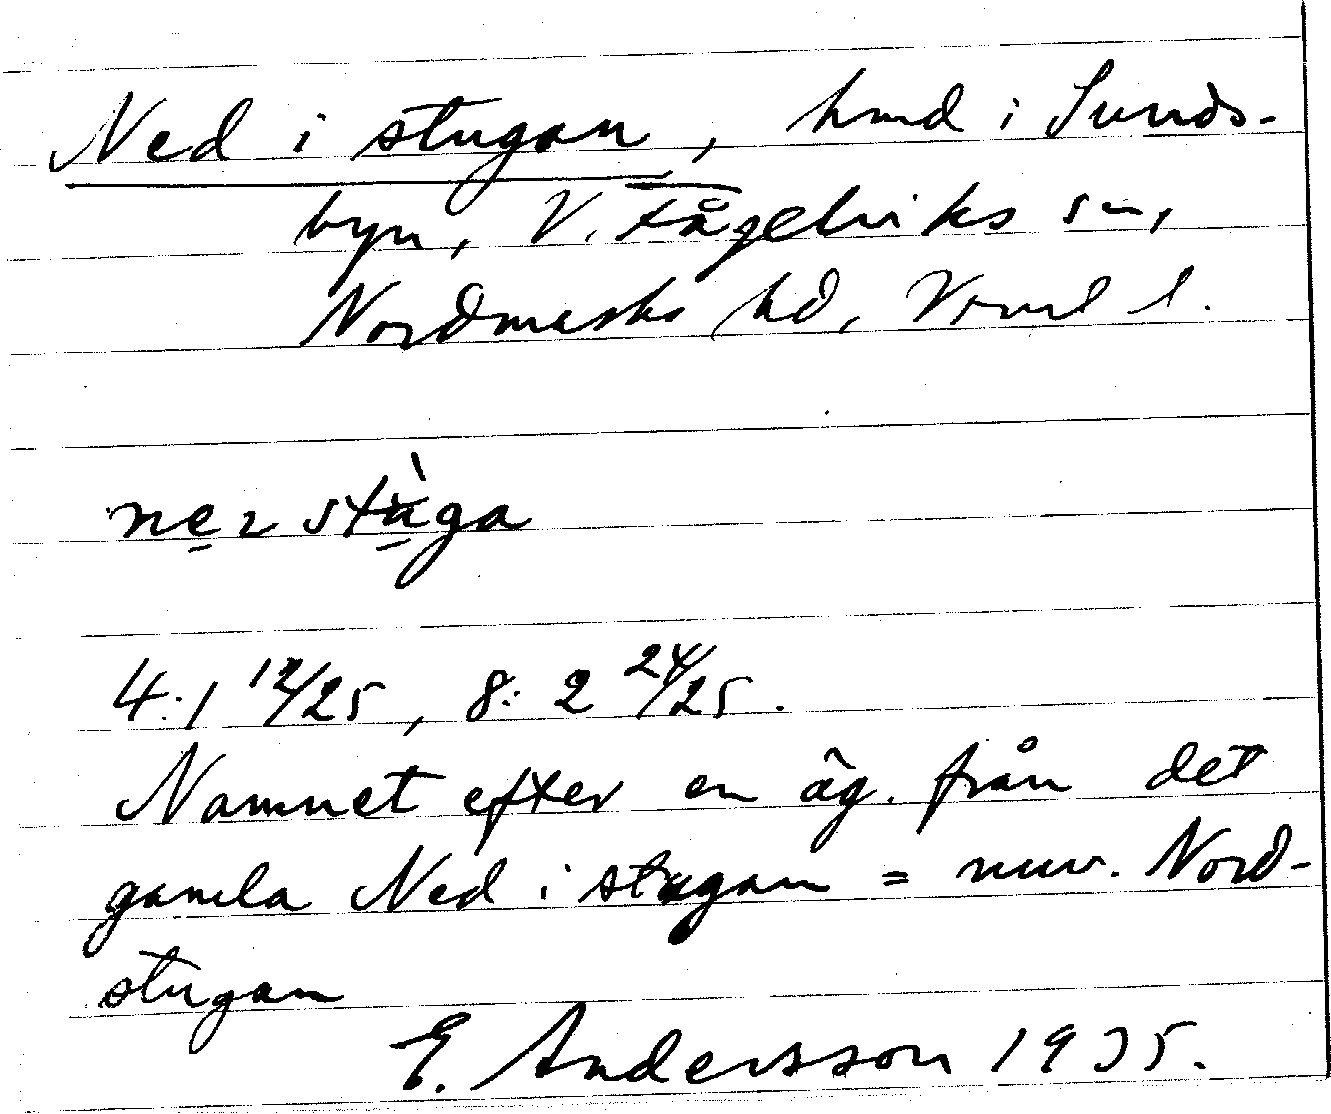 Ned i stugan, hmd i Sunds-
byn, V. Fågelviks sn,
Nordmarks hd, Vrml l.
ne̠r stù̠ga
4:1 12/25, 8:2 24/25.
Namnet efter en äg. från det
gamla Ned i stugan = nuv. Nord-
stugan
E. Andersson 1935.